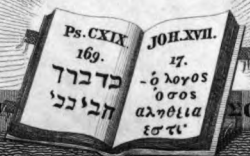 Ps. CXIX.
169.
כדברך
הבינני
JOH. XVII.
17.
- ὁ λογος
ὁ σος
αληθεια
εστι·